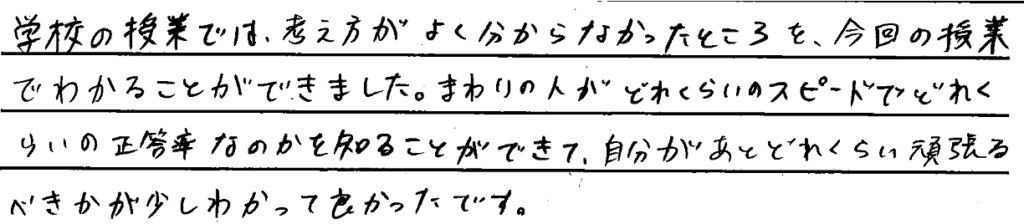 学校の授業では、考え方がよく分からなかったところを、今回の授業
でわかることができました。まわりの人がどれくらいのスピードでどれく
らいの正答率なのかを知ることができて、自分があとどれくらい頑張る
べきかが少しわかって良かったです。